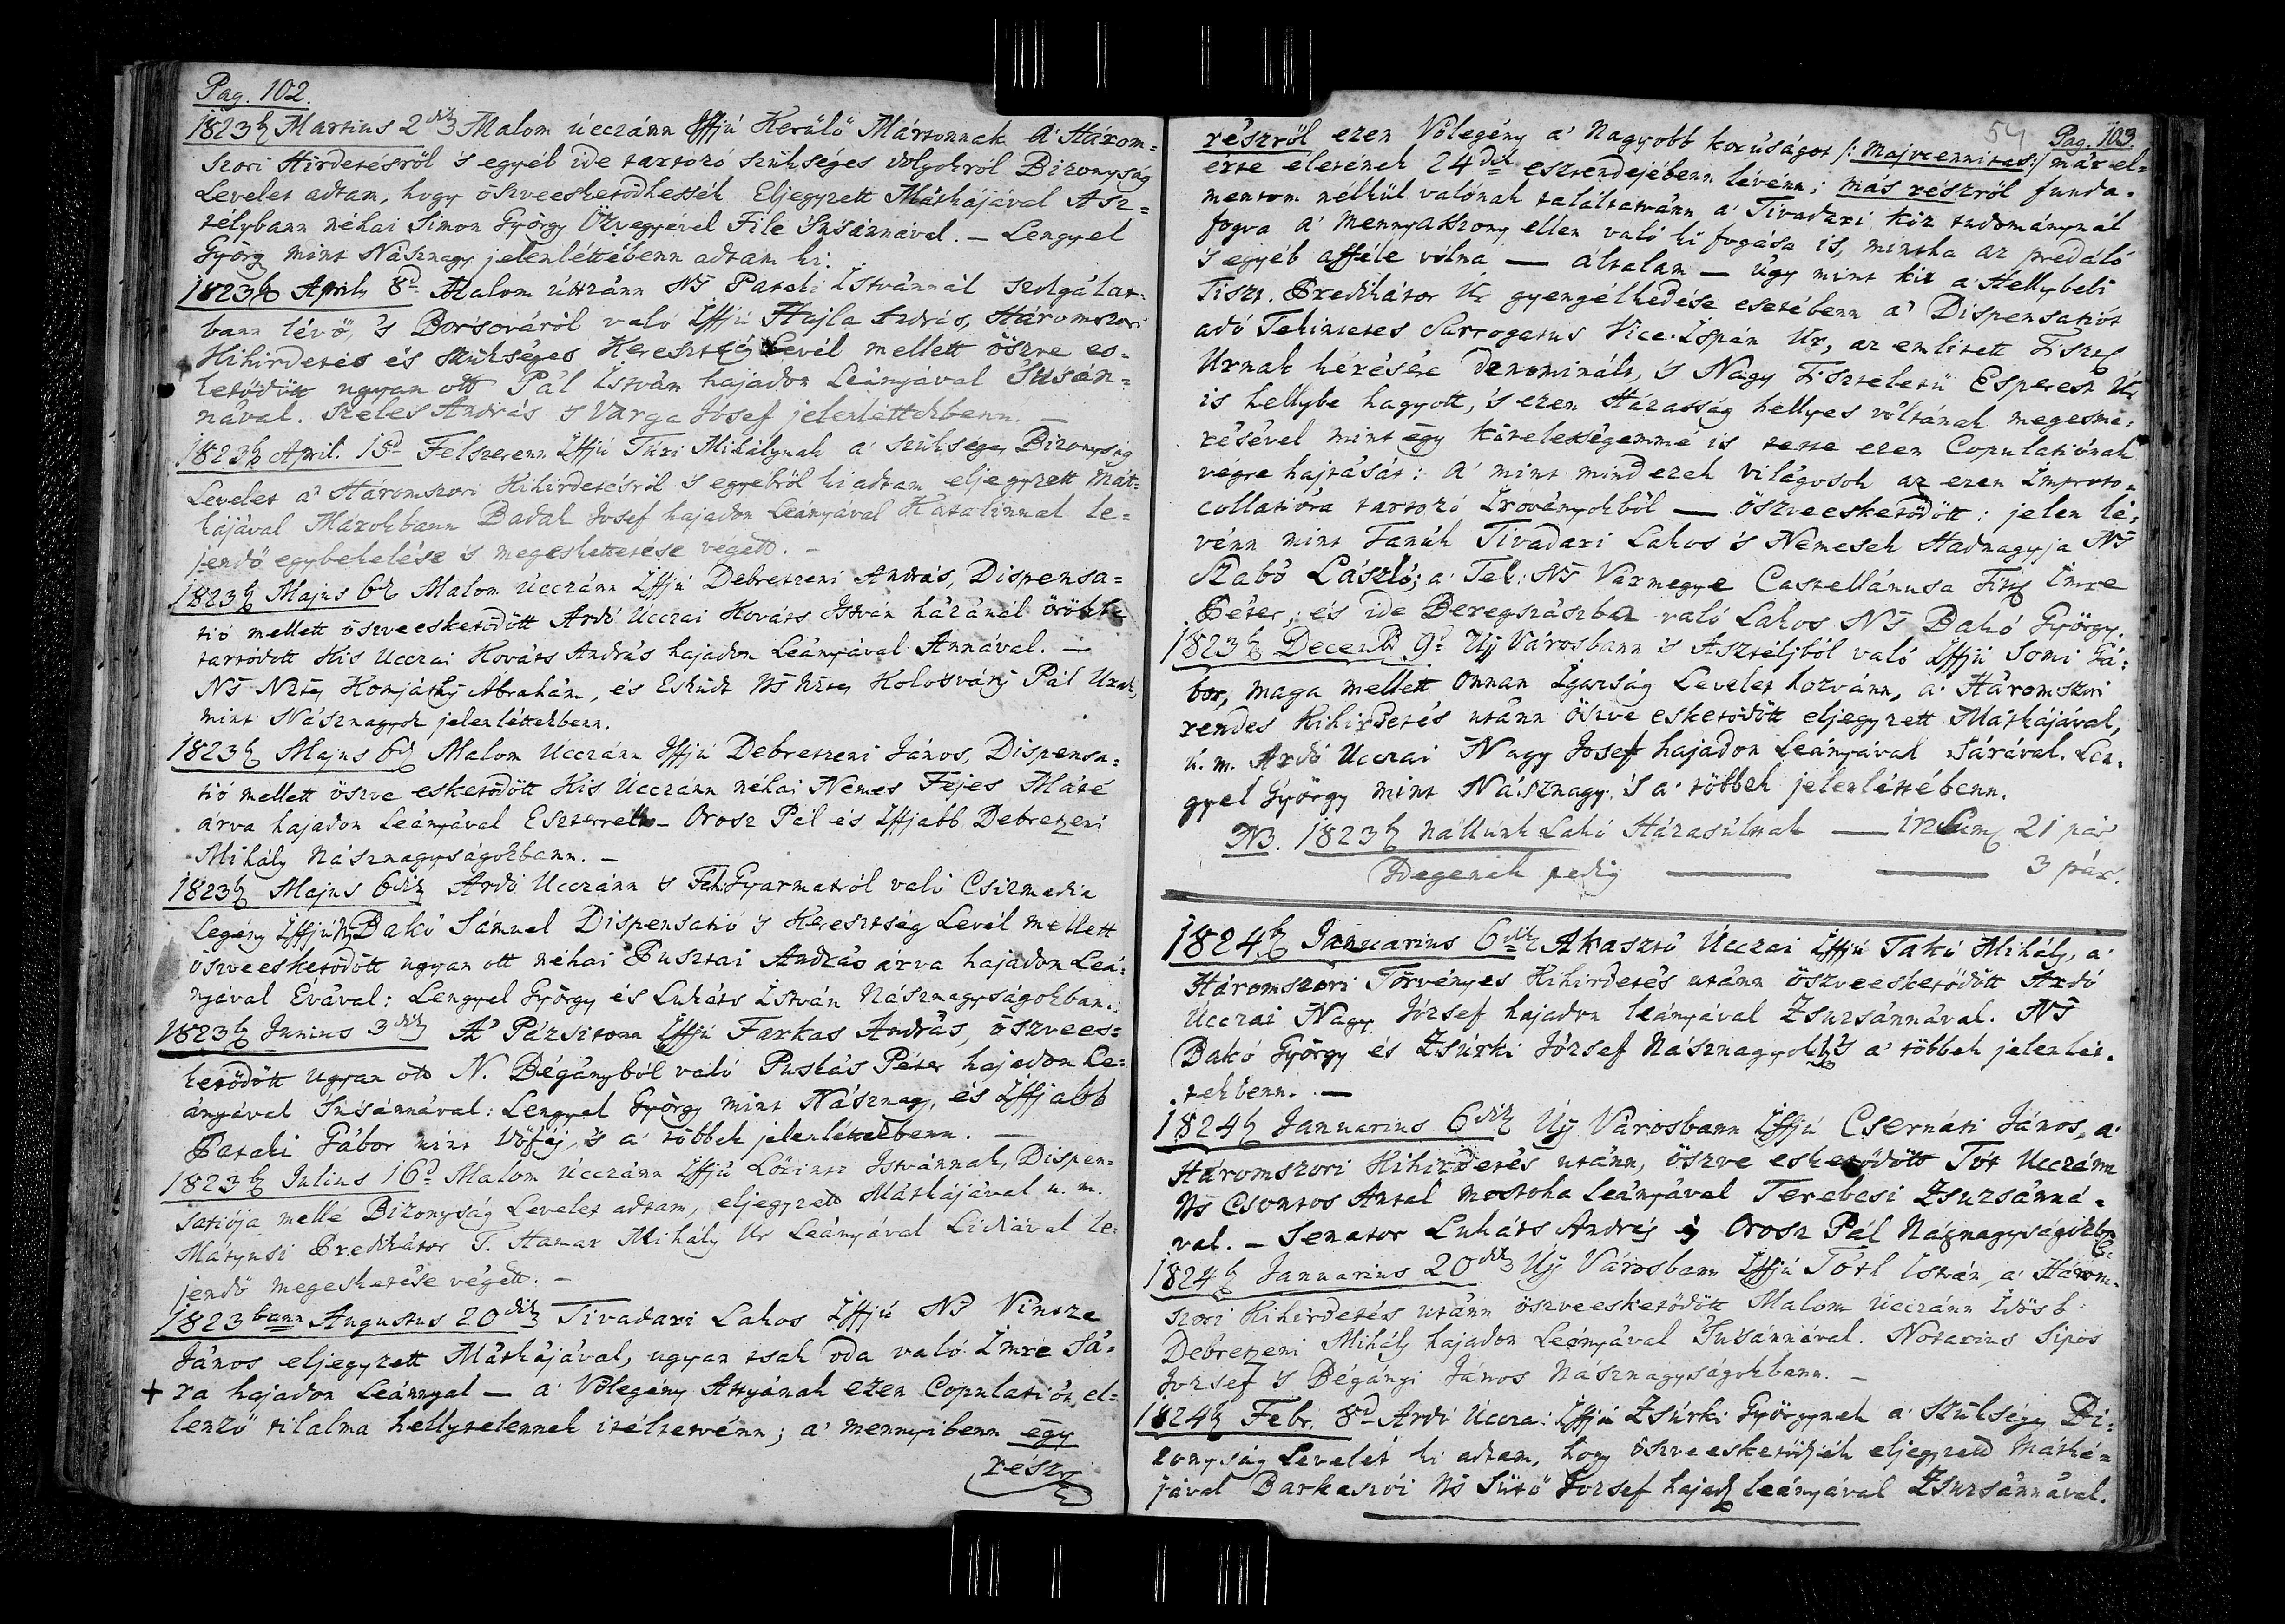 Pag. 102.
1823b Martius 2dik Malom úcczánn Iffjú Kerülő Mártonnak a' Három-
szori Hirdetésről 's egyéb ide tartozó szükséges dolgokról Bizonyság
Levelet adtam, hogy öszveesketődhessék Eljegyzett Mátkájával Asz-
télybann néhai Simon György Özvegyével File Susánnával. — Lengyel
György mint Násznagy jelenléttébenn adtam ki.
1823b April 8d Malom útzánn NS Pataki Istvánnál szolgálat-
bann lévő, 's Borsováról való Iffjú Hajla András, Háromszori
Kihirdetés és szükséges Keresztség Levél mellett öszve es-
ketődött ugyan ott Pál István hajadon Leányával Susán-
nával. Szeles András 's Varga Josef jelenléttekbenn. —
1823b April. 15d Felszerenn Iffjú Tári Mihálynak a' szükséges Bizonyság
Levelet a' Háromszori Kihirdetésről 's egyebről kiadtam eljegyzett Mát-
kájával Márokbann Badak Josef hajadon Leányával Katalinnal le-
jendő egybekelése 's megeskettetése végett. —
1823b Majus 6d Malom Úcczánn Iffjú Debretzeni András, Dispensa-
tió mellett öszveesketődött Ardó Úcczai Kováts István házánál
tartódott Kis Ucczai Kováts András hajadon Leányával Annával. —
NS Ntes Komjáthy Abrahám, és Esküdt NS Ntes Kolosváry Pál Urak,
mint Násznagyok jelenléttekbenn.
1823b Majus 6d Malom Ucczánn Iffjú Debretzeni János, Dispensa-
tió mellett öszve esketődött Kis Úcczánn néhai Nemes Fejes Máté
árva hajadon Leányával Eszterrel. — Orosz Pál és Iffjabb Debretzeni
Mihály Násznagyságokbann. —
1823b Majus 6dik Ardó Ucczánn 's Feh. Gyarmatról való Csizmadia
Legény Iffjú NS Bakó Sámuel Dispensatió 's Keresztség Levél mellett
öszveesketődött ugyan ott néhai Pusztai András árva hajadon Leá-
nyával Évával: Lengyel György és Lukáts István Násznagyságokban.
1823b Junius 3dik A' Pázsitonn Iffjú Farkas András, öszvees-
ketődött ugyan ott N. Bégányból való Puskás Péter hajadon Le-
ányával Susánnával: Lengyel György mint Násznagy, és Iffjabb
Pataki Gábor mint Vőféj, 's a' többek jelenléttekbenn. —
1823b Julius 16d Malom Ucczánn Iffjú Lőrintz Istvánnak, Dispen-
satiója mellé Bizonyság Levelet adtam, eljegyzett Mátkájával u. m.
Mátyusi Predikátor T. Hamar Mihály Ur Leányával Lidiával le-
jendő megesketése végett. —
1823bann Augustus 20dik Tivadari Lakos Iffjú NS Vintze
János eljegyzett Mátkájával, ugyan tsak oda való Imre Sá-
+ ra hajadon Leánnyal — a' Vőlegény Attyának ezen Copulatiót el-
lenző tilalma hellytelennek itéltetvénn; a' mennyibenn egy
részr
54 Pag. 103.
részről ezen Vőlegény a' nagyobb korúságot /: majorennitas :/ már el-
érte életének 24dik esztendejébenn lévénn; más részről funda-
mentom nélkül valónak találtatvánn a' Tivadari köz tudománynál
fogva a' mennyasszony ellen való ki fogása is, mintha az prédáló
's egyéb afféle vólna — általam — úgy mint kit a' Hellybeli
Tiszt. Predikátor Ur gyengélkedése esetébenn a' Dispensatiót
adó Tekintetes Surrogatus Vice-Ispán Ur, az emlitett Tiszt
Urnak kérésére denominált, 's Nagy Tiszteletű Esperest Ur
is hellybe hagyott, 's ezen Házasság hellyes vóltának megesmé-
résével mint egy kötelességemmé is tette ezen Copulatiónak
végre hajtását: a' mint mind ezek világosok az ezen Improto-
collatióra tartozó Irományokból — öszveesketődött: jelen lé-
vénn mint Tanúk Tivadari Lakos 's Nemesek Hadnagyja NS
Szabó László; a' Tek: NS Vármegye Castellánusa Imre
Péter; és ide Beregszászba való Lakos NS Bakó György.
1823b Decemb 9d Uj Városbann 's Asztéljból való Iffjú Somi Gá-
bor, maga mellett onnan Igazság Levelet hozvánn, a' Háromszori
rendes Kihirdetés utánn öszve esketődött eljegyzett Mátkájával,
u. m. Ardó Ucczai Nagy Josef hajadon Leányával Sárával. Len-
gyel György mint Násznagy 's a' többek jelenléttébenn.
NB. 1823b nállúnk Lakó Házasúlnak — in Sum 21 pár
Idegenek pedig — — 3 pár.
1824b Januarius 6dik Akasztó Úcczai Iffjú Takó Mihály, a'
Háromszori Törvényes Kihirdetés utánn öszveesketődött Ardó
Ucczai Nagy József hajadon leányával Zsuzsánnával. NS
Bakó György és Zsúrki József Násznagyok 's a' többek jelenlét-
tekbenn. —
1824b Januarius 6dik Uj Városbann Iffjú Csernáti János, a'
Háromszori Kihirdetés utánn, öszve esketődött Tót Ucczánn
NS Csontos Antal mostoha leányával Terebesi Zsuzsánná-
val. — Senator Lukáts András és Orosz Pál Násznagyságokb
1824b Januarius 20dik Uj Városbann Iffjú Tóth István, a' Három-
szori Kihirdetés utánn öszveesketődött Malom Ucczánn Idősb
Debretzeni Mihály hajadon Leányával Susánnával. Notarius Sipos
Jozsef 's Bégányi János Násznagyságokbann. —
1824b Febr. 8d Ardó Úcczai Iffjú Zsúrki Györgynek a' szükséges Bi-
zonyság Levelet ki adtam, hogy öszveesketődjék eljegyzett Mátká-
jával Barkaszói NS Sütő Jozsef hajad leányával Zsuzsánnával.